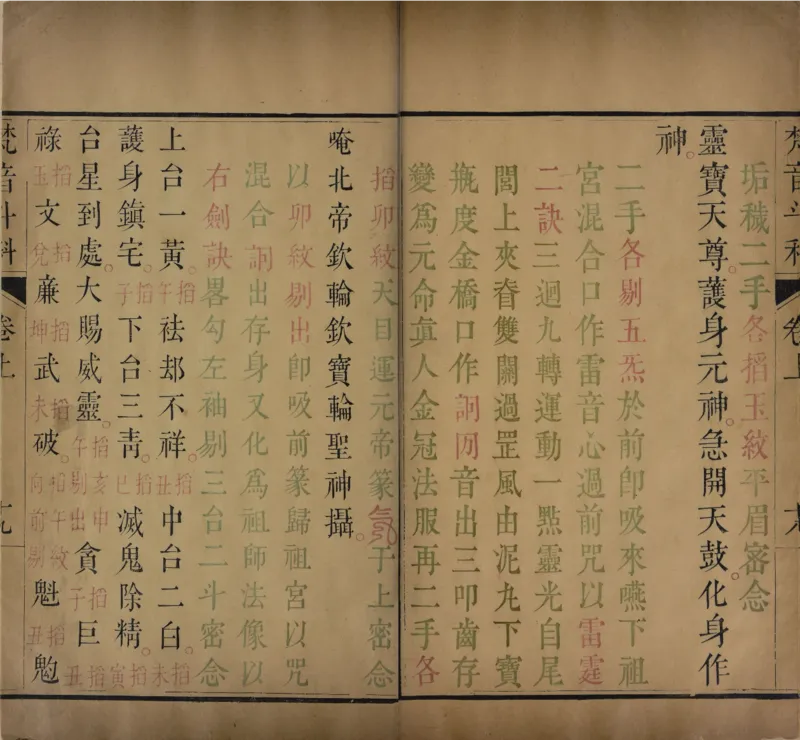 梵音斗科 卷上
垢穢二手各搯玉紋平眉密念
靈寶天尊。護身元神。急開天鼓。化身作
神。
二手各剔五炁於前卽吸來嚥下祖
宮混合口作雷音心過前咒以雷霆
二訣三迴九轉運動一㸃靈光自尾
閭上夾脊雙關過罡風由泥丸下寶
瓶度金橋口作音出三叩齒存
變爲元命眞人金冠法服再二手各
搯卯紋天目運元帝篆于上密念
唵北帝欽輪欽寶輪聖神攝。
以卯紋剔出卽吸前篆歸祖宮以咒
混合出存身又化爲祖師法像以
右劍訣畧勾左袖剔三台二斗密念
上台一黃。搯午祛却不祥。搯丑中台二白。搯未
護身鎮宅。搯子下台三青。搯巳滅鬼除精。搯寅
台星到處。大賜威靈。搯亥申午剔出貪搯子巨搯丑
祿搯玉文搯兌廉搯坤武搯未破。搯午紋向前剔魁搯丑
梵音斗科 卷上 十九